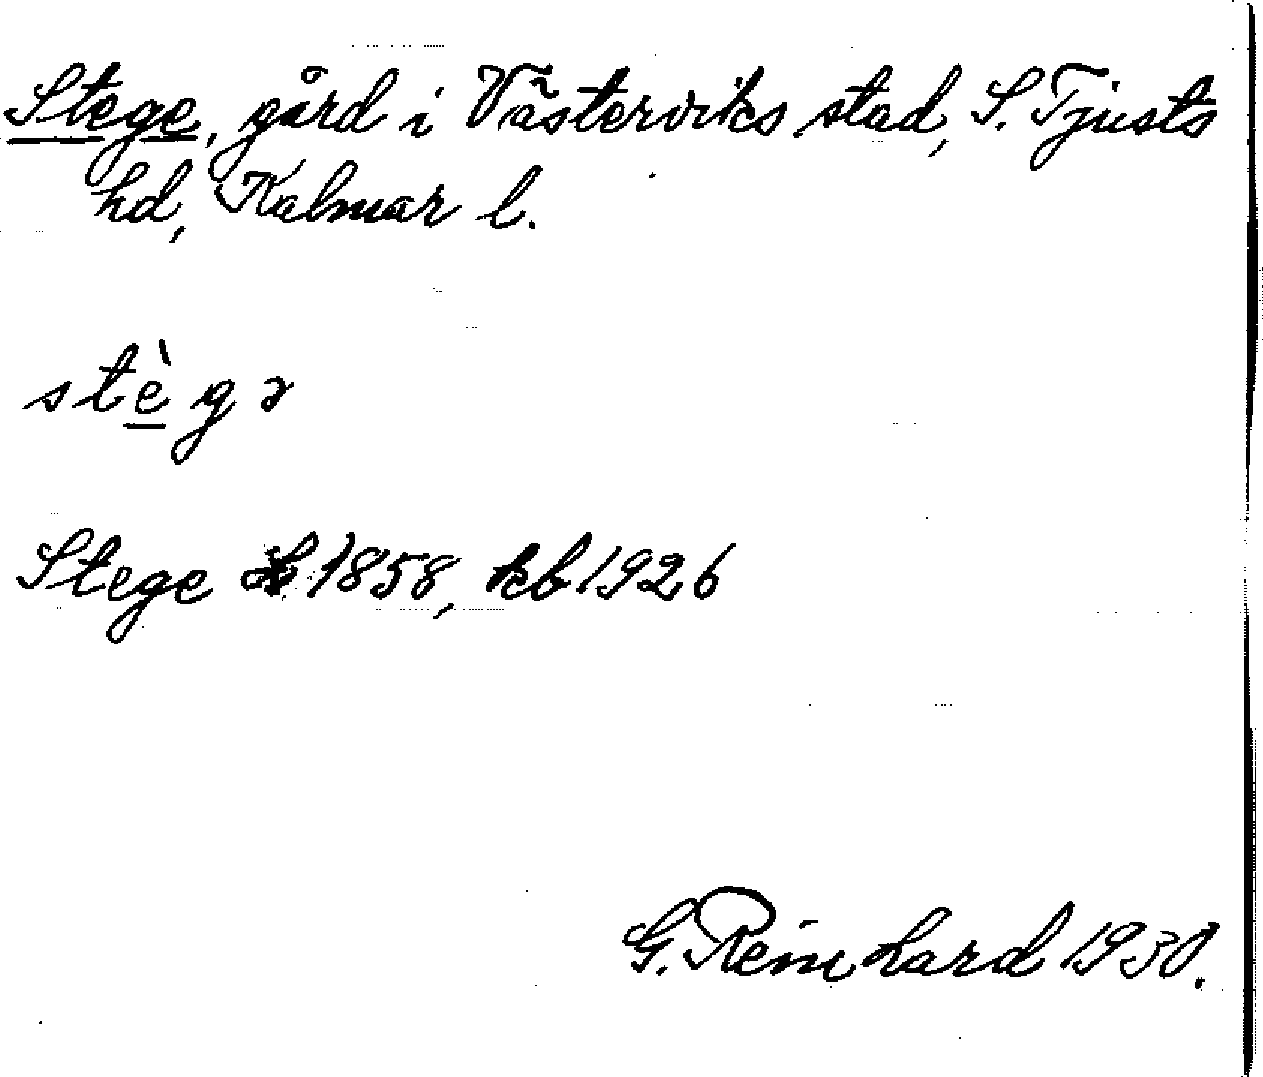 Stege, gård i Västerviks stad, S. Tjusts
hd, Kalmar l.
stè̱gə
Stege 1858, kb 1926
G. Reinhard 1930.